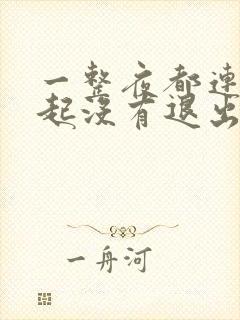 一整夜都连
起没有退出
一舟河